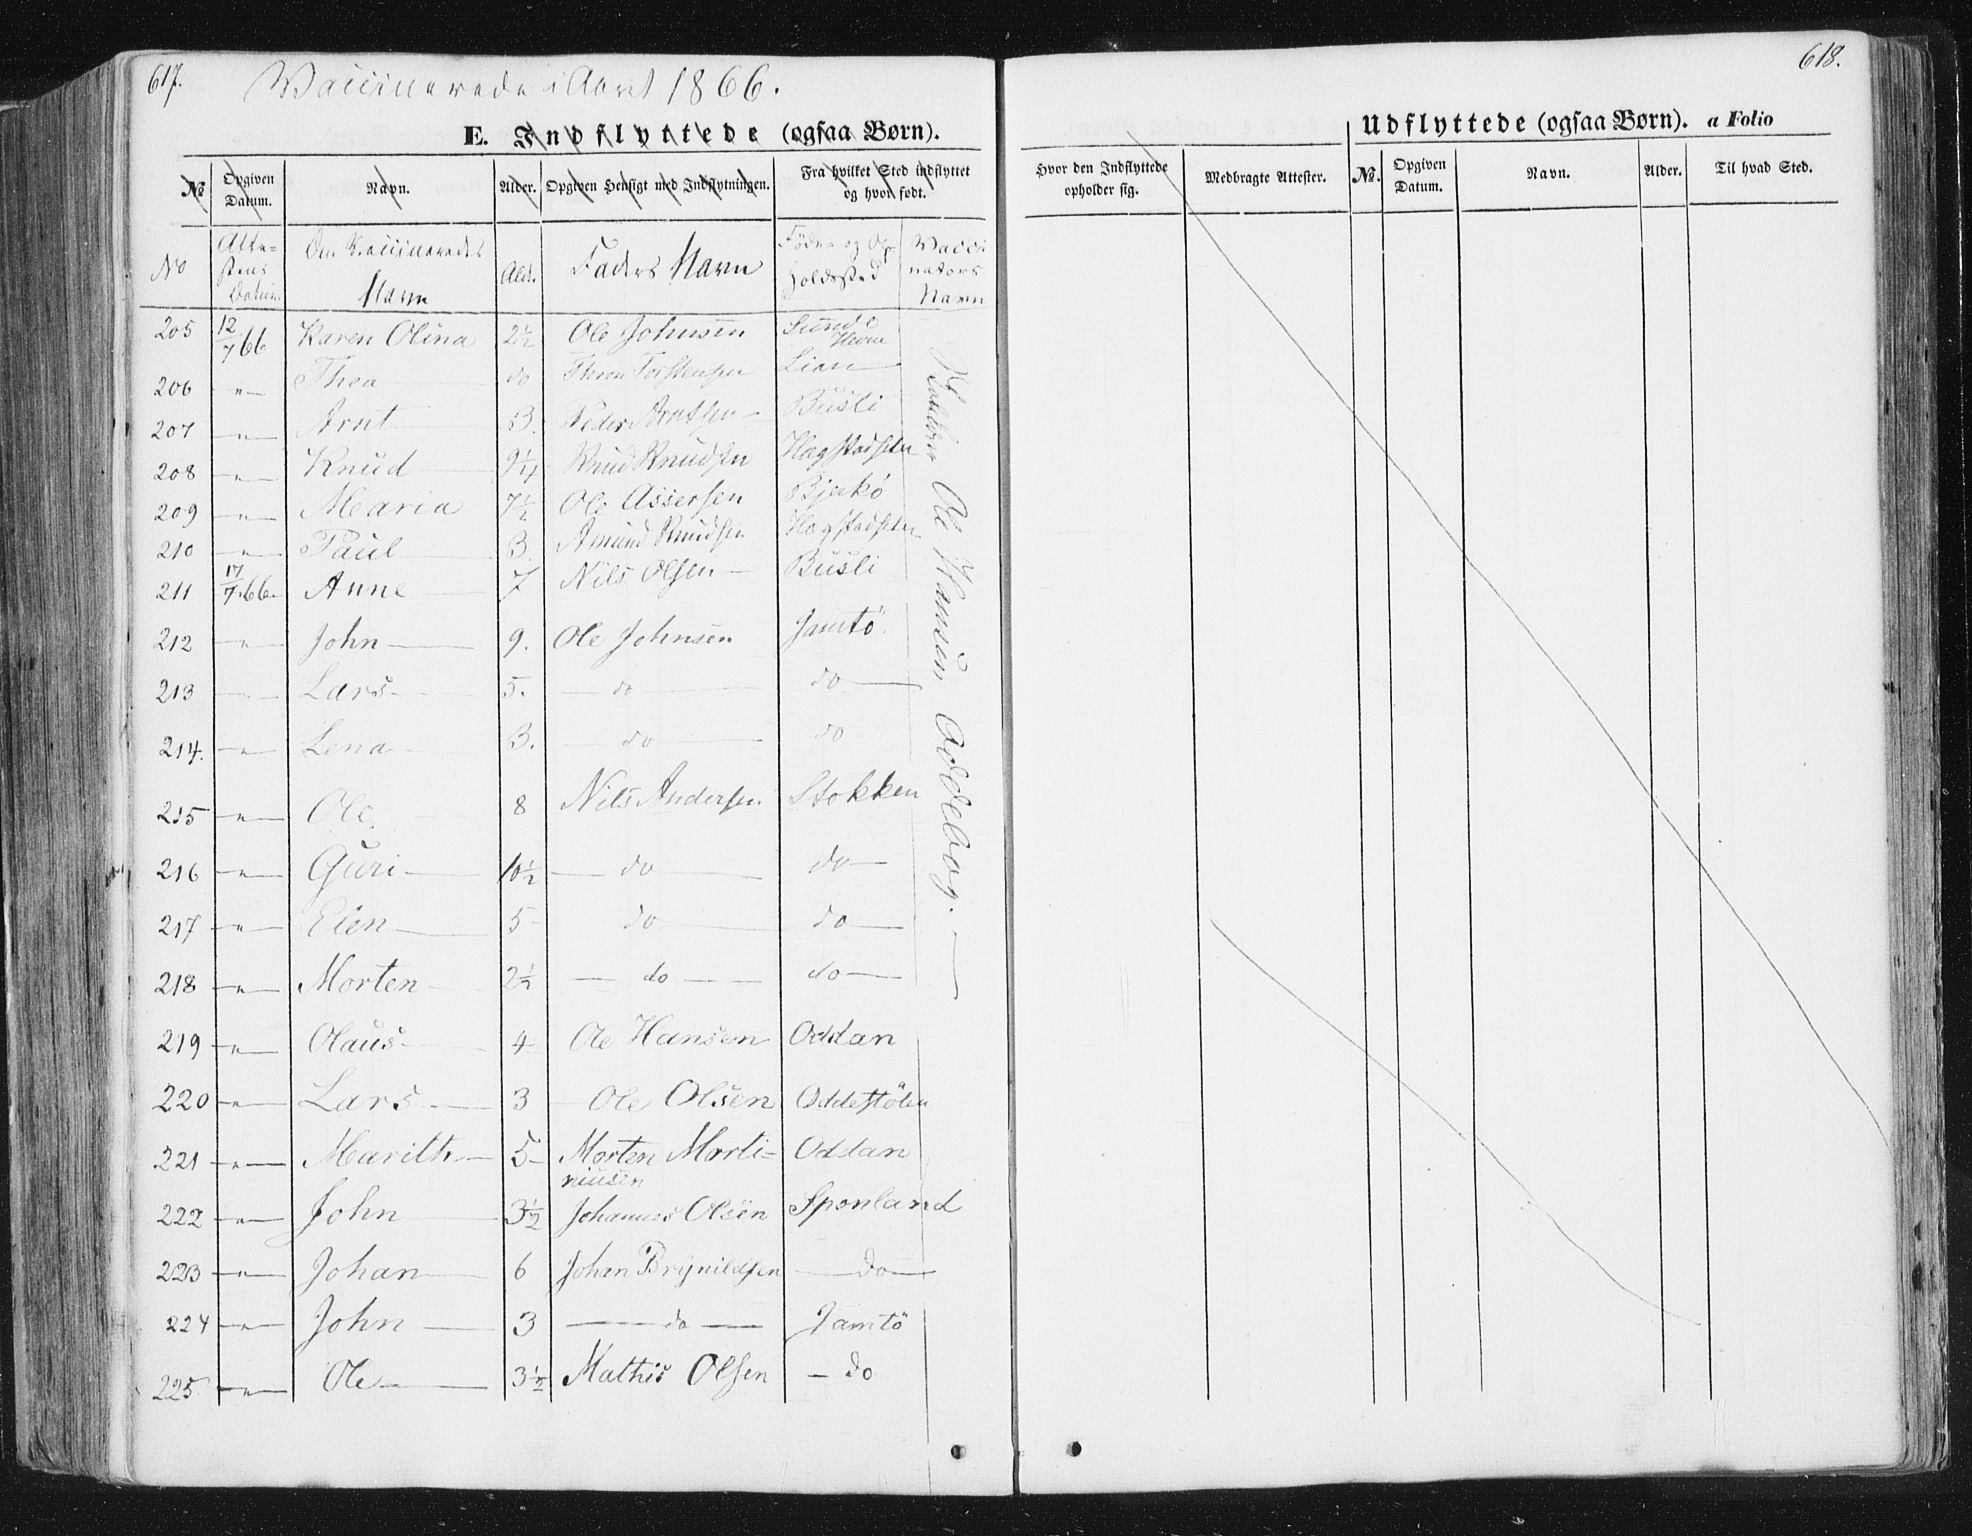 617.
Vaccinerede i Aaret 1866.
E. Indflyttede (ogsaa Børn).
№ Opgiven Datum. Navn. Alder. Opgiven Hensigt med Indflytningen. Fra hvilket Sted indflyttet og hvor født.
No Attestens Datum Den Vaccineredes Navn Ald. Faders Navn Føde- og Opholdssted Vaccinators Navn
205 12/7 66 Karen Olina 2½ Ole Johnsen Sunde Hevne
206 〃 Thea do Thron Torstensen Lian
207 〃 Arnt 3. Peder Arntsen Busli
208 〃 Knud 9¼ Knud Knudsen Hægstadsetr
209 〃 Maria 7½ Ole Assersen Bjerkö
210 〃 Paul 3. Amund Knudsen Hægstadsetr
211 17/7 66 Anne 7 Nils Olsen Busli
212 〃 John 9. Ole Johnsen Jamtö
213 〃 Lars 5. do do
214. 〃 Lena 3. do do
215 〃 Ole 8 Nils Andersen Stokken
216 〃 Guri 10½ do do
217 〃 Elen 5 do do
218 〃 Morten 2½ do do
219 〃 Olaus 4 Ole Hansen Oddan
220 〃 Lars 3 Ole Olsen Oddestölen
221 〃 Marith 5 Morten Martiniusen Oddan
222 〃 John 3½ Johannes Olsen Sponland
223 〃 Johan 6 Johan Brynildsen do
224 〃 John 3 do Jamtö
225 〃 Ole 3½ Mathis Olsen do
Ole Hansen Oddebog.
618.
Udflyttede (ogsaa Børn). a Folio
Hvor den Indflyttede opholder sig. Medbragte Attester. №. Opgiven Datum. Navn. Alder. Til hvad Sted.